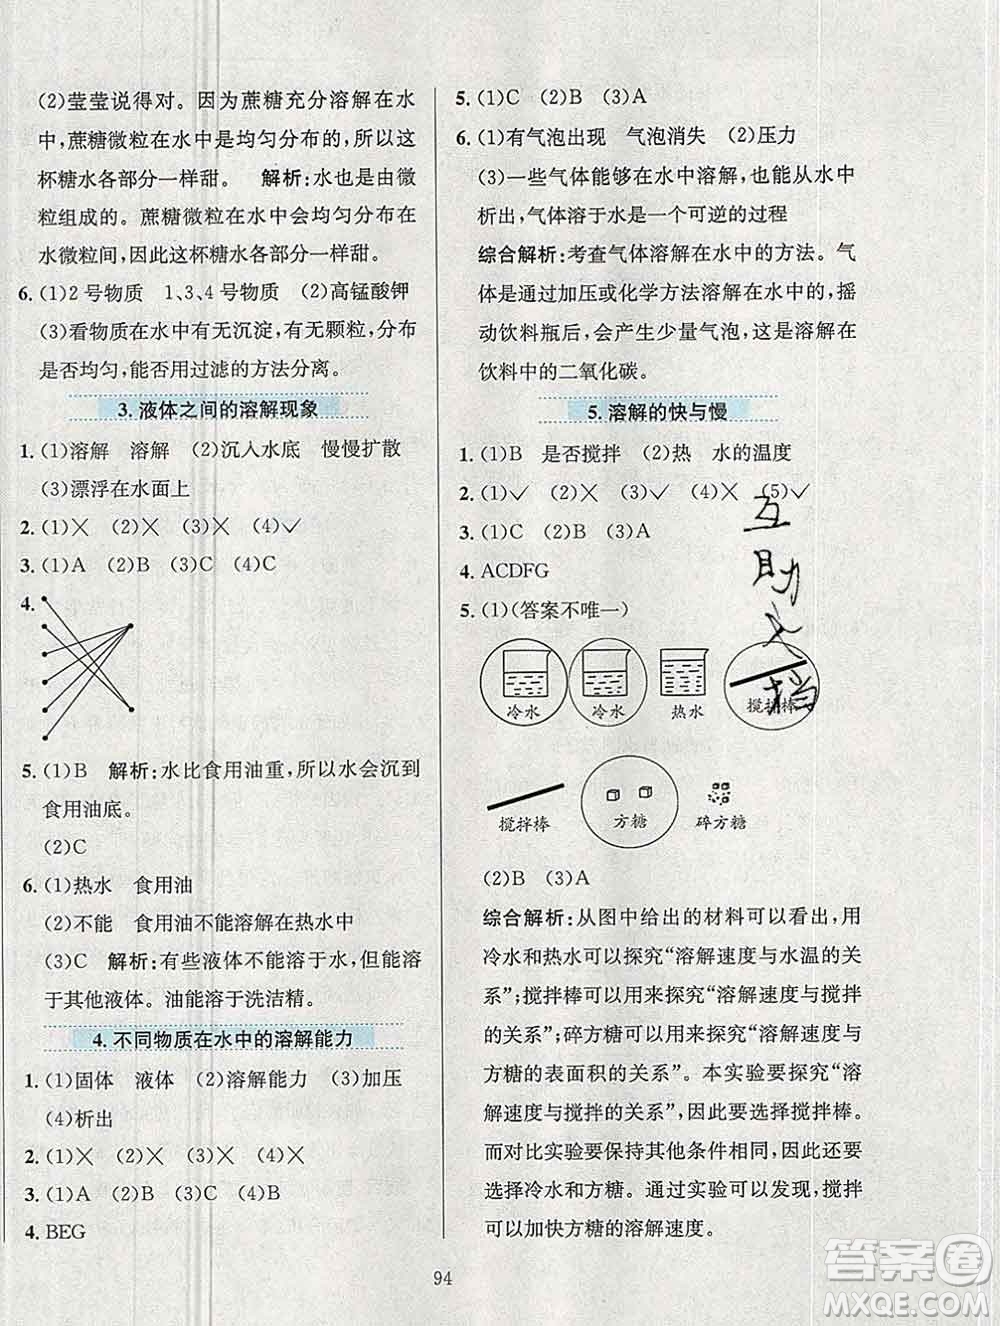 (2)莹莹说得对。因为蔗糖充分溶解在水
中，蔗糖微粒在水中是均匀分布的，所以这
杯糖水各部分一样甜。 解析:水也是由微
粒组成的。蔗糖微粒在水中会均匀分布在
水微粒间，因此这杯糖水各部分一样甜。
6. (1)2号物质 1、3、4号物质 (2)高锰酸钾
(3)看物质在水中有无沉淀，有无颗粒，分布
是否均匀，能否用过滤的方法分离。
3. 液体之间的溶解现象
1. (1)溶解 溶解 (2)沉入水底 慢慢扩散
(3)漂浮在水面上
2. (1)× (2)× (3)× (4)✓
3. (1)A (2)B (3)C (4)C
4.
5. (1)B 解析:水比食用油重，所以水会沉到
食用油底。
(2)C
6. (1)热水 食用油
(2)不能 食用油不能溶解在热水中
(3)C 解析:有些液体不能溶于水，但能溶
于其他液体。油能溶于洗洁精。
4. 不同物质在水中的溶解能力
1. (1)固体 液体 (2)溶解能力 (3)加压
(4)析出
2. (1)× (2)× (3)× (4)×
3. (1)A (2)B (3)C (4)B
4. BEG
5. (1)C (2)B (3)A
6. (1)有气泡出现 气泡消失 (2)压力
(3)一些气体能够在水中溶解，也能从水中
析出，气体溶于水是一个可逆的过程
综合解析:考查气体溶解在水中的方法。气
体是通过加压或化学方法溶解在水中的，摇
动饮料瓶后，会产生少量气泡，这是溶解在
饮料中的二氧化碳。
5. 溶解的快与慢
1. (1)B 是否搅拌 (2)热 水的温度
2. (1)✓ (2)× (3)✓ (4)× (5)✓
3. (1)C (2)B (3)A
4. ACDFG
5. (1)(答案不唯一)
冷水 冷水 热水 搅拌棒
搅拌棒 方糖 碎方糖
(2)B (3)A
综合解析:从图中给出的材料可以看出，用
冷水和热水可以探究“溶解速度与水温的关
系”；搅拌棒可以用来探究“溶解速度与搅拌
的关系”；碎方糖可以用来探究“溶解速度与
方糖的表面积的关系”。本实验要探究“溶
解速度与搅拌的关系”，因此要选择搅拌棒。
而对比实验要保持其他条件相同，因此还要
选择冷水和方糖。通过实验可以发现，搅拌
可以加快方糖的溶解速度。
互
助
文
档
94
答案圈
MXQE.COM